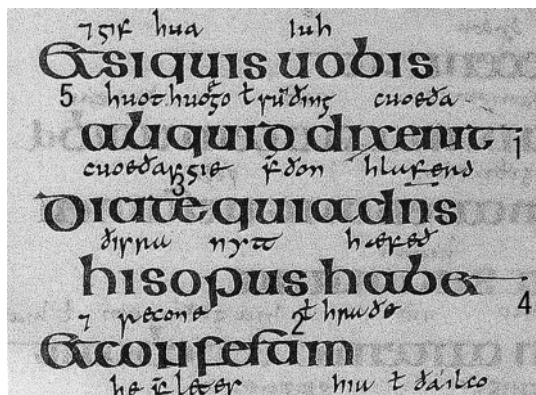 ⁊ gif hua iuh
Et si quis uobis
5 huot huogo ł cuoeða
aliquid dixerit 1
cuoeðas gie f̄ðon hlaferd
3
Dicite quia dn̄s
ðissa nytt hæfeð
his opus habet 4
⁊ recone 2 ł hraðe
Et confestim
he f̄leter hiu ł ðailco